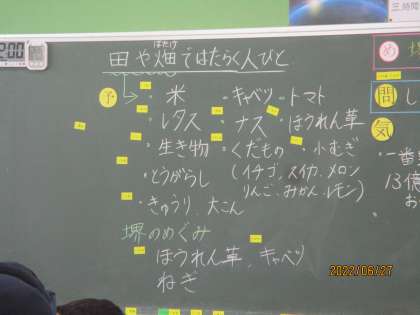 三時間
2:00
はたけ
田や畑ではたらく人びと
予
・米 ・キャベツ ・トマト
・レタス ・ナス ・ほうれん草
・生き物 ・くだもの ・小むぎ
・とうがらし (イチゴ、スイカ、メロン
りんご、みかん、レモン)
・きゅうり、大こん
堺のめぐみ
ほうれん草、キャベツ
ねぎ
め 堺
問 し
気
・一番
13億
お
2022/06/27